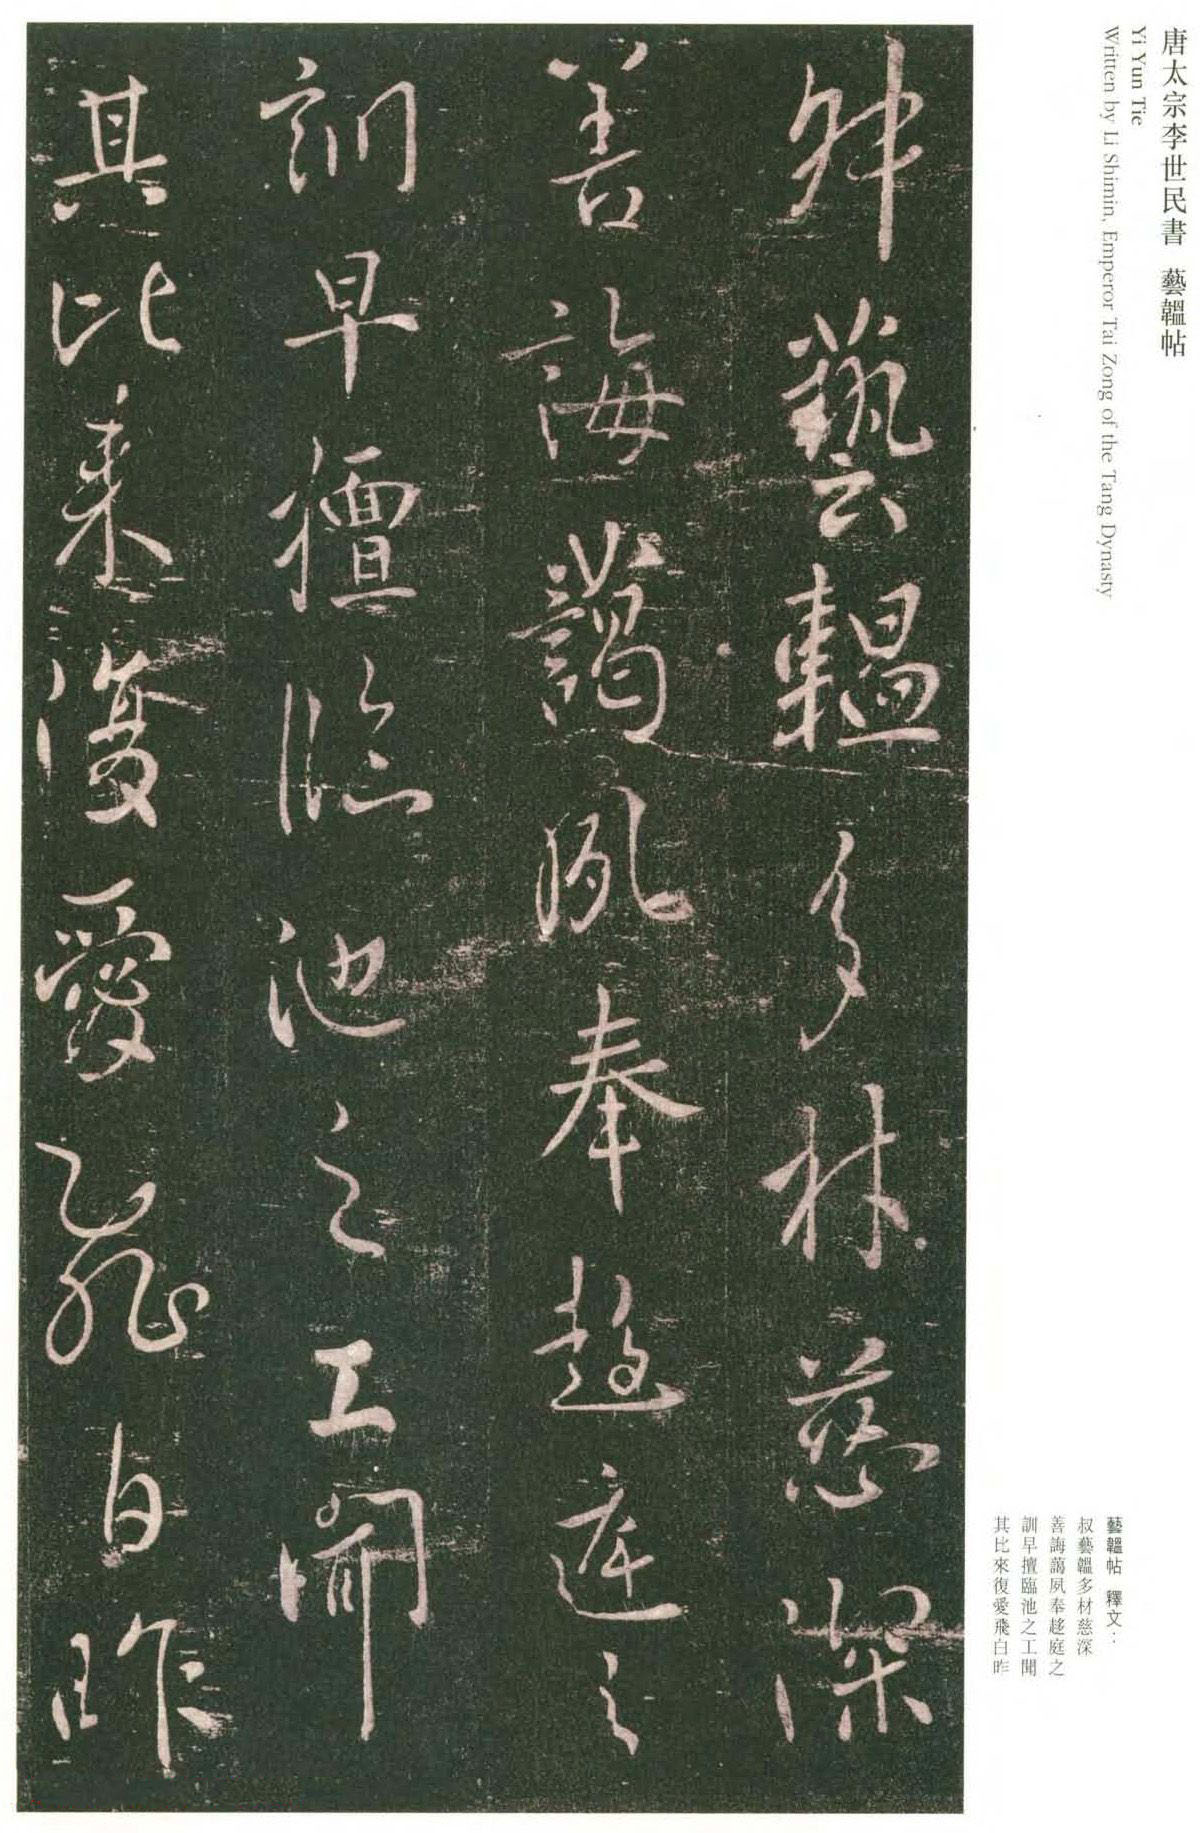 唐太宗李世民書 藝韞帖
Yi Yun Tie
Written by Li Shimin, Emperor Tai Zong of the Tang Dynasty
叔藝韞多材慈深
善誨藹夙奉趍庭之
訓早擅臨池之工聞
其比來復愛飛白昨
藝韞帖 釋文：
叔藝韞多材慈深
善誨藹夙奉趍庭之
訓早擅臨池之工聞
其比來復愛飛白昨